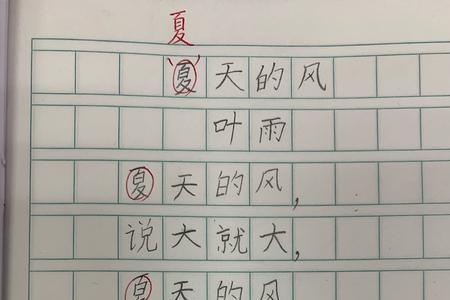 夏
夏天的风
叶雨
夏天的风，
说大就大，
夏天的风